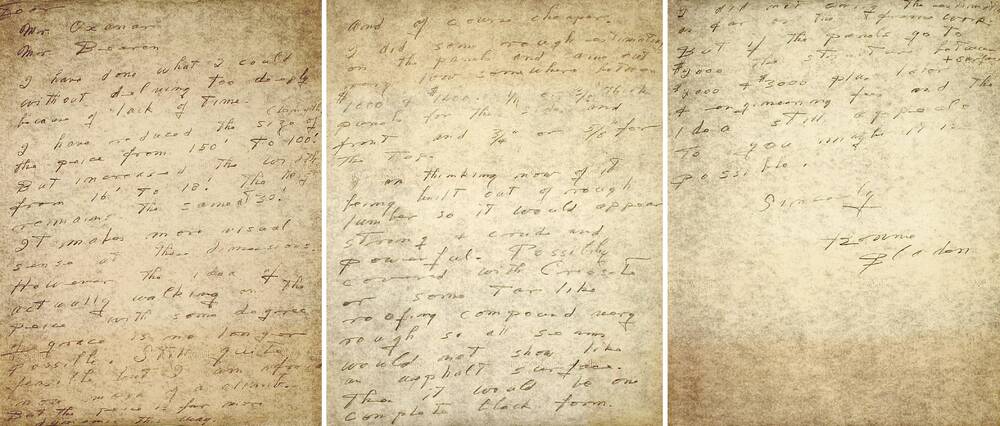 Dear
Mr.
Mr.
I have done what I could
without delving too deeply
because of lack of time.
(length)
I have reduced the size of
the peice from 150' to 100'.
But increased the width
from 16' to 18'. The height
remains the same 30'.
It makes more visual
sense at these dimensions.
However the idea of
actually walking on the
peice with some degree
of grace is no longer
possible. Still quite
feasible but I am afraid
more of a climb.
But the peice is far more
this way.
And of course cheaper.
I did some rough estimating
on the panels and
low somewhere between
$1000 + $1400. thick
panels for the and
front and 3/4" or 5/8" for
the top.
I am thinking now of it
being built out of rough
lumber so it would appear
strong + crude and
powerful. Possibly
covered with Creosote
or some tar like
roofing compound very
rough so all seams
would not show like
an asphalt surface.
Then it would be one
complete black form.
I did not the estimate
as far as the framework.
But if the panels go to
$1000 the structure between
+ surface
$2000 + $3000 plus labor
+ engineering fees and the
idea still appeals
to you maybe it is
possible.
Sincerely
Ronnie
Bladen